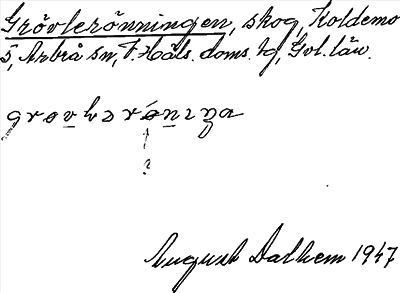 Grövlerönningen, skog, Koldemo
5, Arbrå sn, V. Häls. doms. tg, Gvl. län.
?
August Dalhem 1947